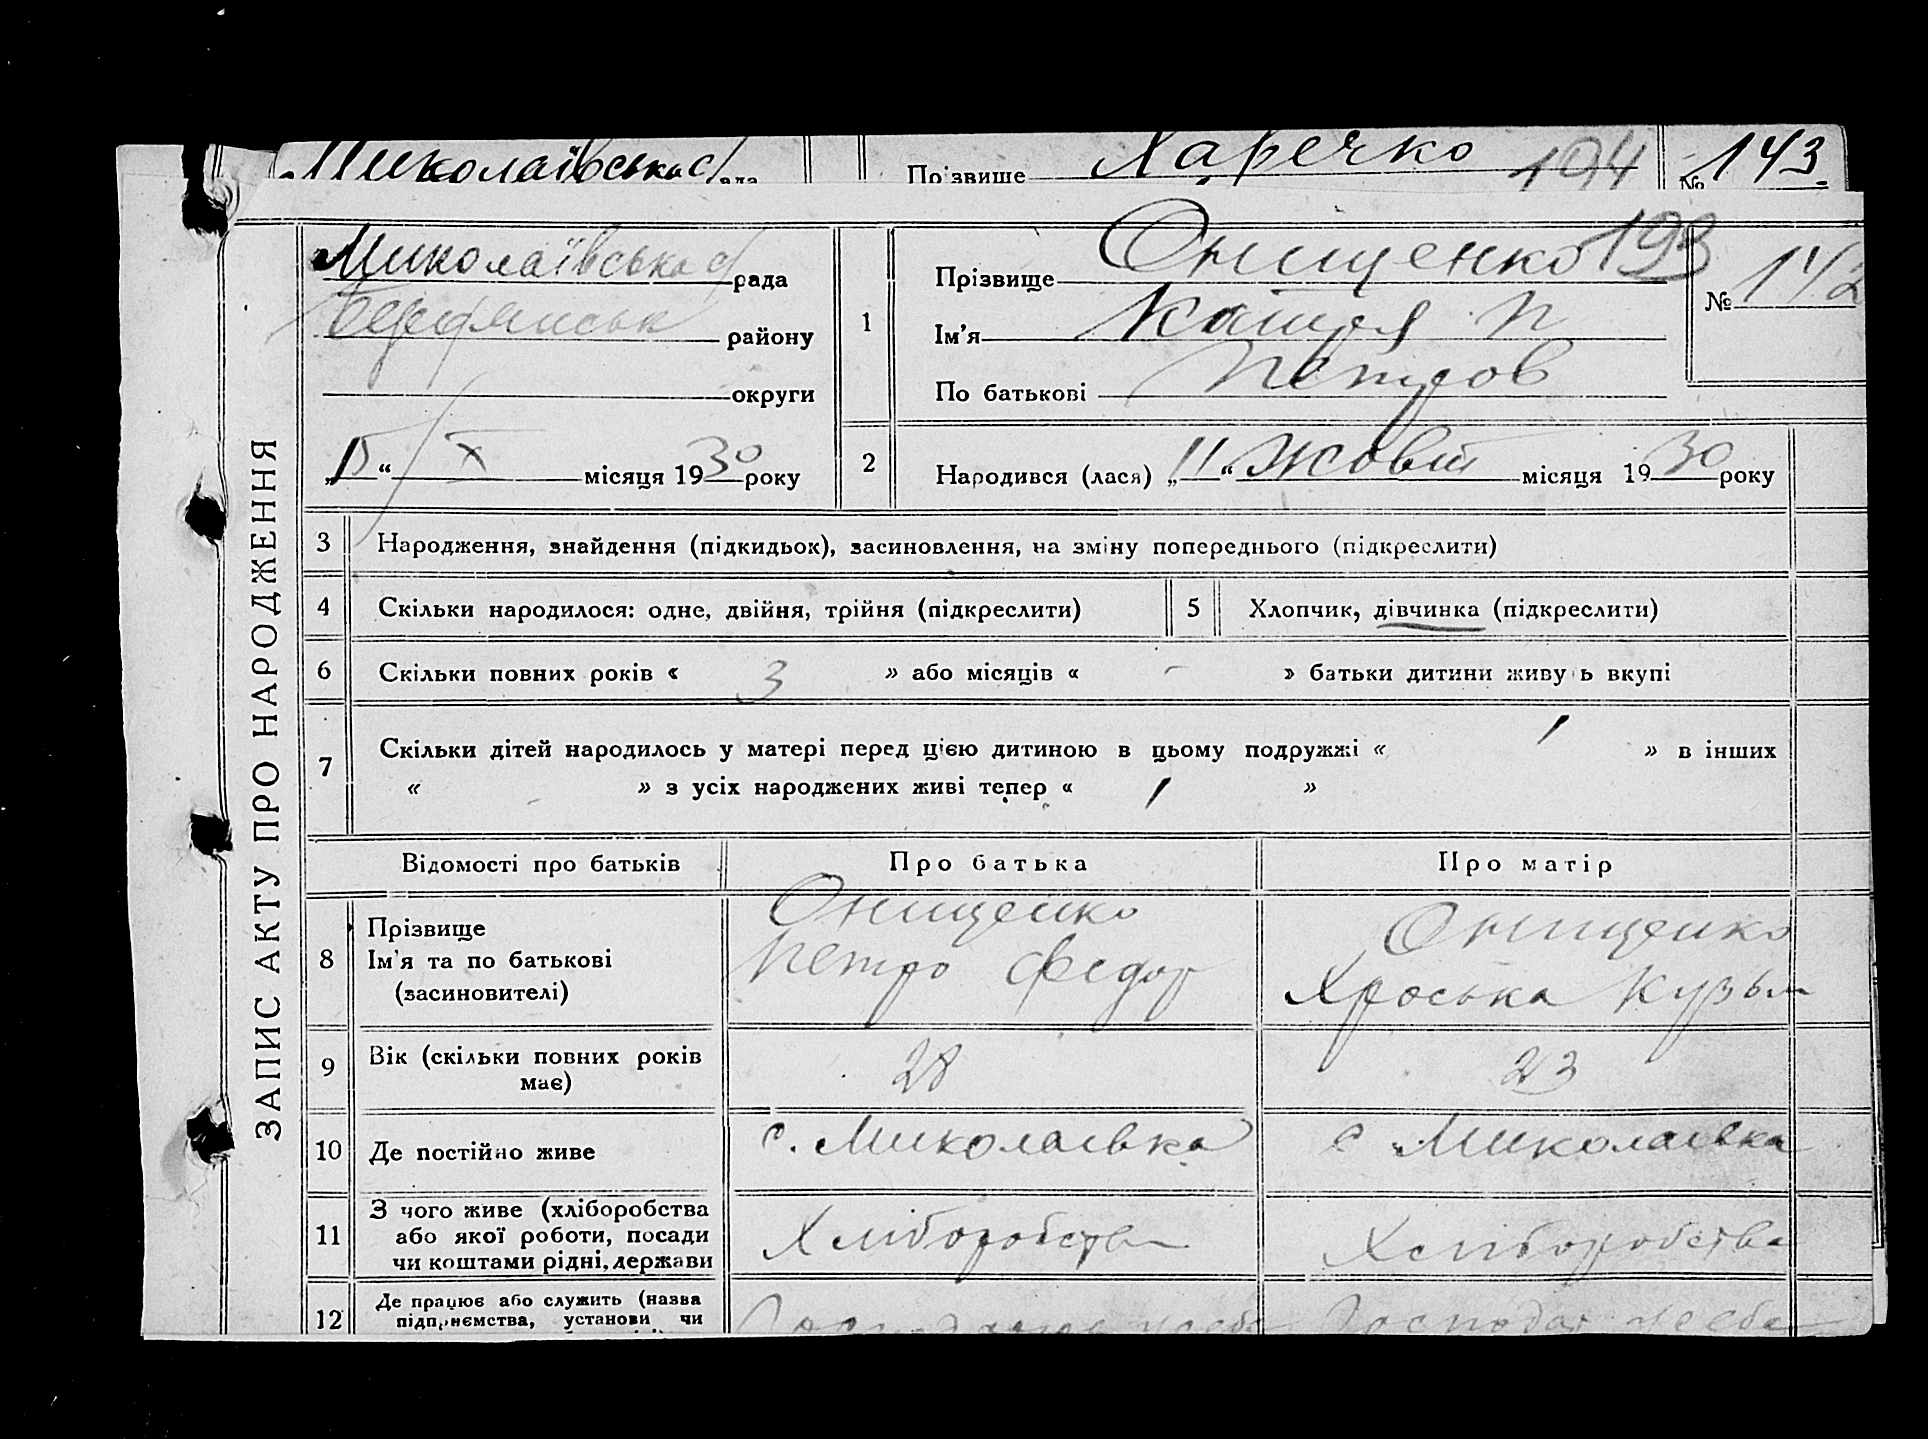 Миколаївська с/рада
Прізвище Харечко 194 № 143
Миколаївська с/рада
Бердянськ району
округи
„15“ X місяця 1930 року
1
Прізвище Онищенко 193
№ 142
Ім'я Катря П
По батькові Петров
2
Народився (лася) „11“ Жовт місяця 1930 року
ЗАПИС АКТУ ПРО НАРОДЖЕННЯ
3 Народження, знайдення (підкидьок), засиновлення, на зміну попереднього (підкреслити)
4 Скільки народилося: одне, двійня, трійня (підкреслити) 5 Хлопчик, дівчинка (підкреслити)
6 Скільки повних років « 3 » або місяців « - » батьки дитини живуть вкупі
7 Скільки дітей народилось у матері перед цією дитиною в цьому подружжі « 1 » в інших
« » з усіх народжених живі тепер « 1 »
Відомості про батьків Про батька Про матір
8 Прізвище
Ім'я та по батькові
(засиновителі)
Онищенко
Петро Федор
Онищенко
Хроська Кузьм
9 Вік (скільки повних років
має)
28 23
10 Де постійно живе с. Миколаевка с Миколаевка
11 З чого живе (хліборобства
або якої роботи, посади
чи коштами рідні, держави
Хліборобства Хліборобства
12 Де працює або служить (назва
підприємства, установи чи
Господар у себе Господар у себе